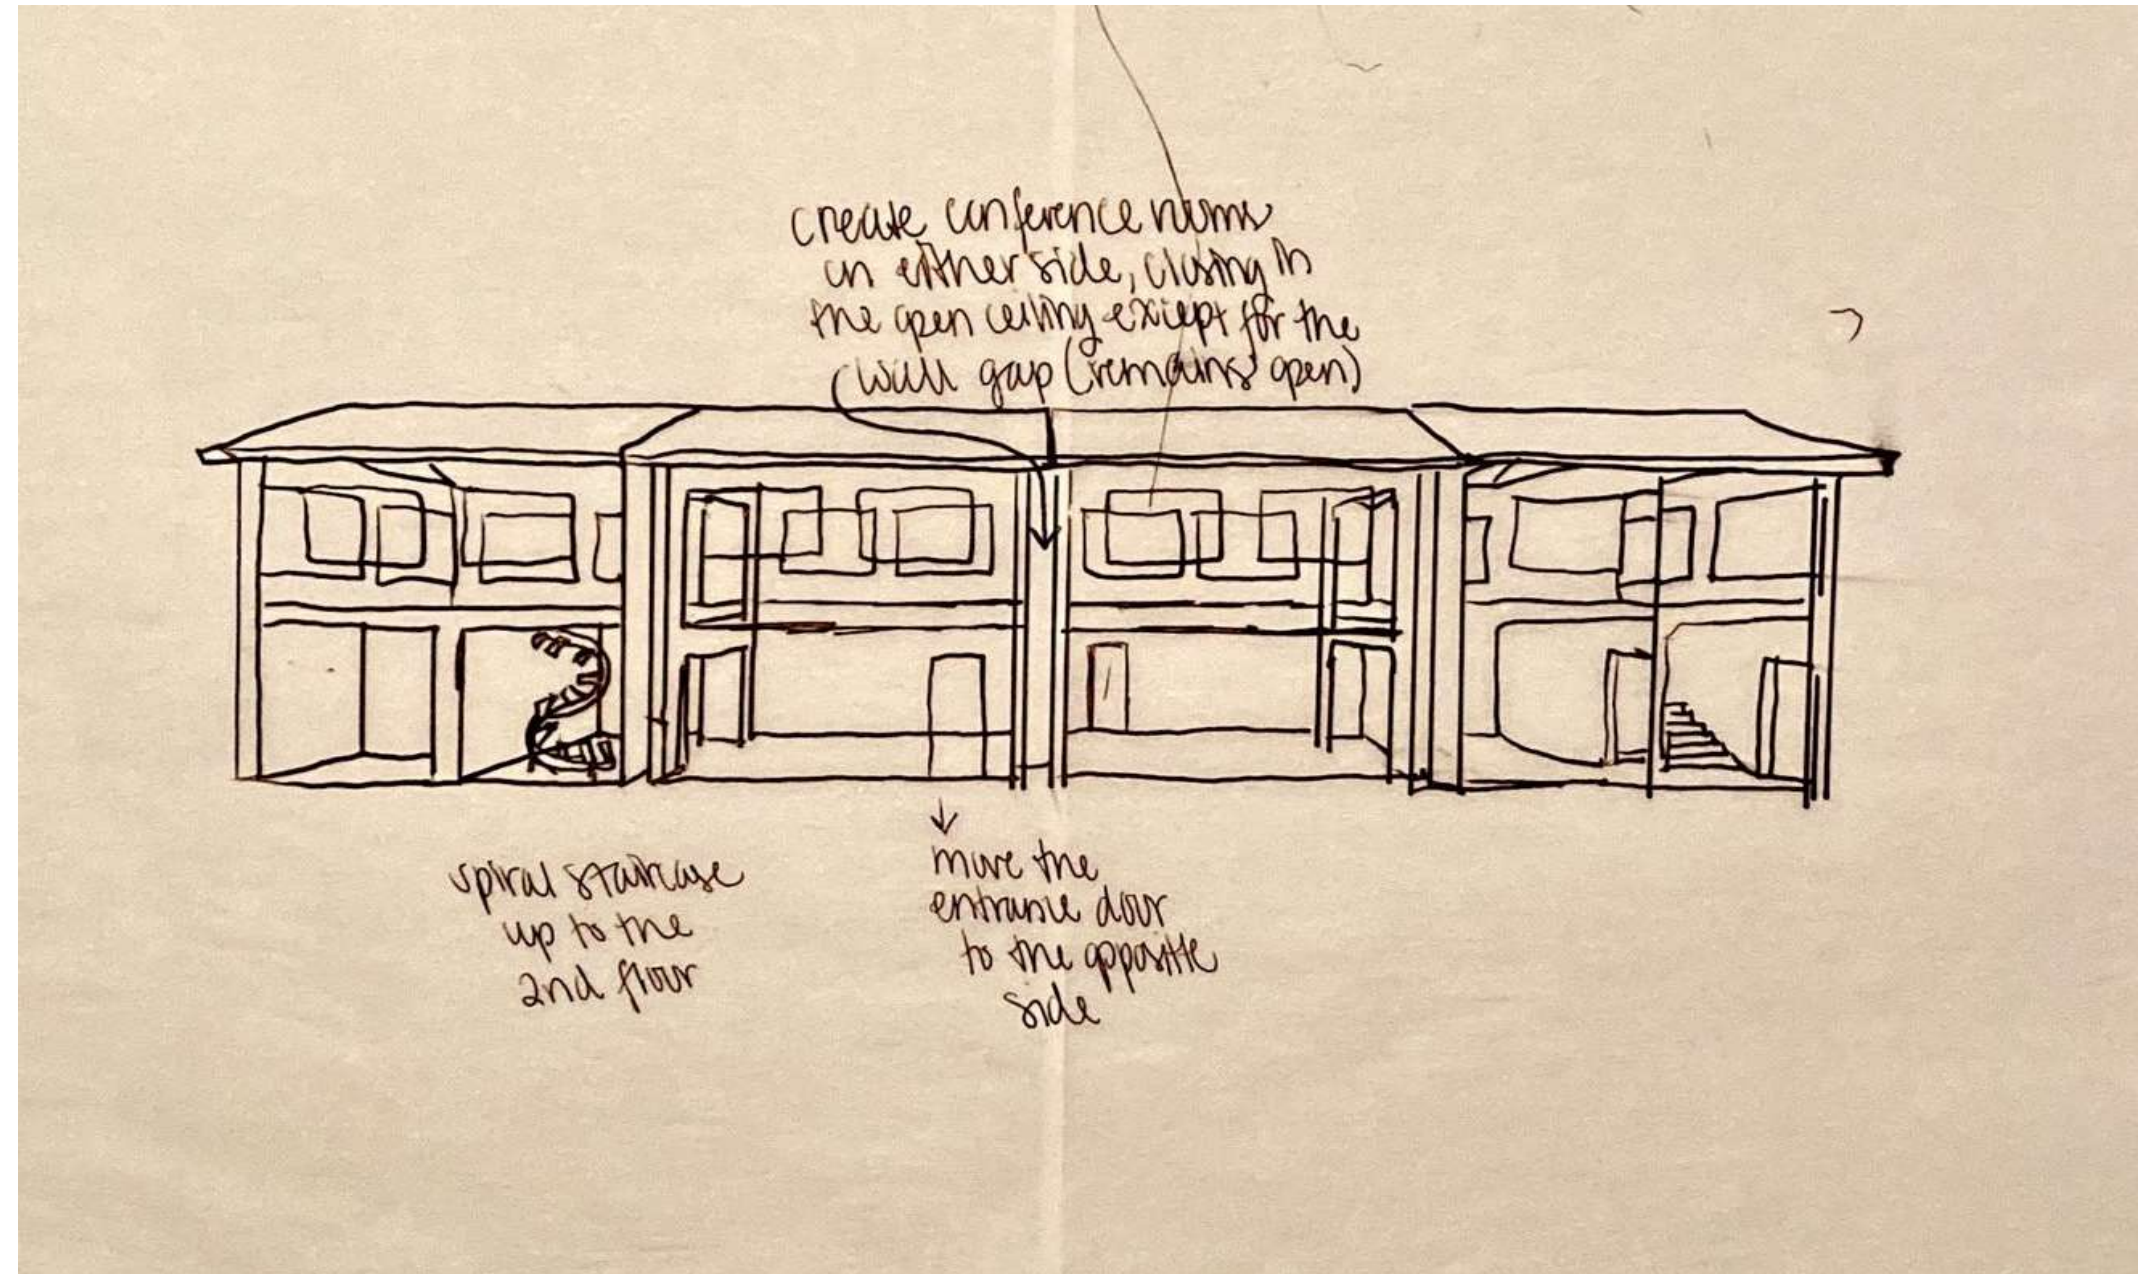 create conference rooms
on either side, closing in
the open ceiling except for the
wall gap (remains open)
spiral staircase
up to the
2nd floor
move the
entrance door
to the opposite
side